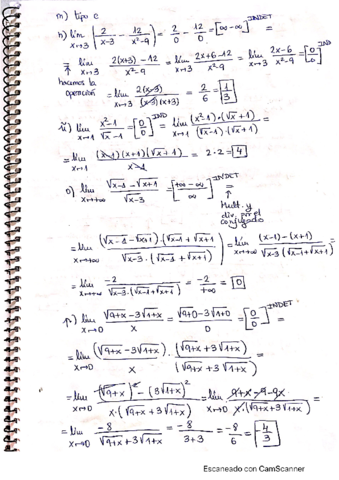 m) tipo c
n) lím x→3 (2/(x-3) - 12/(x²-9)) = 2/0 - 12/0 = [∞-∞] INDET =
= lím x→3 (2(x+3)-12)/(x²-9) = lím x→3 (2x+6-12)/(x²-9) = lím x→3 (2x-6)/(x²-9) = [0/0] IND
hacemos la operación = lím x→3 2(x-3)/((x-3)(x+3)) = 2/6 = 1/3
ñ) lím x→1 (x²-1)/(√x-1) = [0/0] IND = lím x→1 ((x²-1)·(√x+1))/((√x-1)·(√x+1)) =
= lím x→1 ((x-1)(x+1)(√x+1))/(x-1) = 2·2 = 4
o) lím x→+∞ (√x-1 - √x+1)/√x-3 = [(+∞-∞)/∞] INDET =
Mult. y
div. por el
conjugado
= lím x→+∞ ((√x-1 - √x+1)·(√x-1 + √x+1))/(√x-3·(√x-1 + √x+1)) = lím x→+∞ ((x-1)-(x+1))/(√x-3(√x-1+√x+1)) =
= lím x→+∞ -2/(√x-3·(√x-1+√x+1)) = -2/+∞ = 0
p) lím x→0 (√9+x - 3√1+x)/x = (√9+0 - 3√1+0)/0 = [0/0] INDET
= lím x→0 ((√9+x - 3√1+x)/x)·((√9+x + 3√1+x)/(√9+x + 3√1+x)) =
= lím x→0 ((√9+x)² - (3√1+x)²)/(x·(√9+x + 3√1+x)) = lím x→0 (9+x-9-9x)/(x·(√9+x + 3√1+x)) =
= lím x→0 -8/(√9+x + 3√1+x) = -8/(3+3) = -8/6 = -4/3
Escaneado con CamScanner